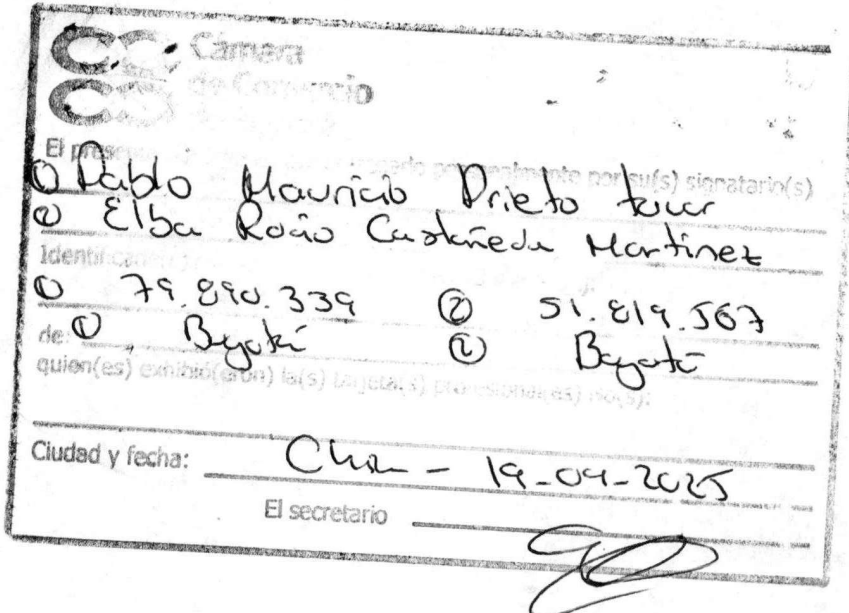 Cámara
de Comercio
El presente personalmente por su(s) signatario(s)
① Pablo Mauricio Prieto
② Elba Rocío Castañeda Martinez
① 79.890.339 ② 51.819.567
de: ① Bogotá ② Bogotá
quien(es) exhibió(eron) la(s) tarjeta(s) profesional(es) No(s):
Ciudad y fecha: Chía - 19-09-2025
El secretario